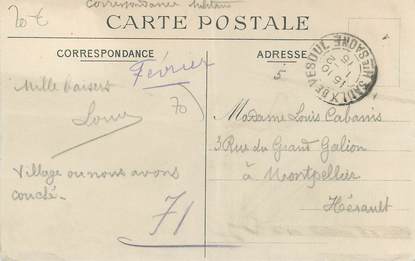 Correspondance militaire
20 €
CARTE POSTALE
CORRESPONDANCE
ADRESSE
Février
5
Mille baisers
70
Louis
Madame Louis Cabanis
3 Rue du Grand Galion
à Montpellier
Hérault
Village ou nous avons
couché.
71
SAULX DE VESOUL
HTE SAONE